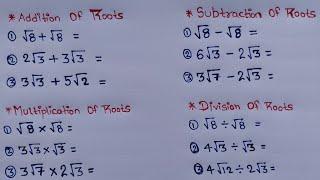 * Addition Of Roots
① √8 + √8 =
② 2√3 + 3√3 =
③ 3√3 + 5√2 =
* Subtraction Of Roots
① √8 − √8 =
② 6√3 − 2√3 =
③ 3√7 − 2√3 =
* Multiplication Of Roots
① √8 × √8 =
② 3√3 × √3 =
③ 3√7 × 2√3 =
* Division Of Roots
① √8 ÷ √8 =
② 4√3 ÷ √3 =
③ 4√12 ÷ 2√3 =